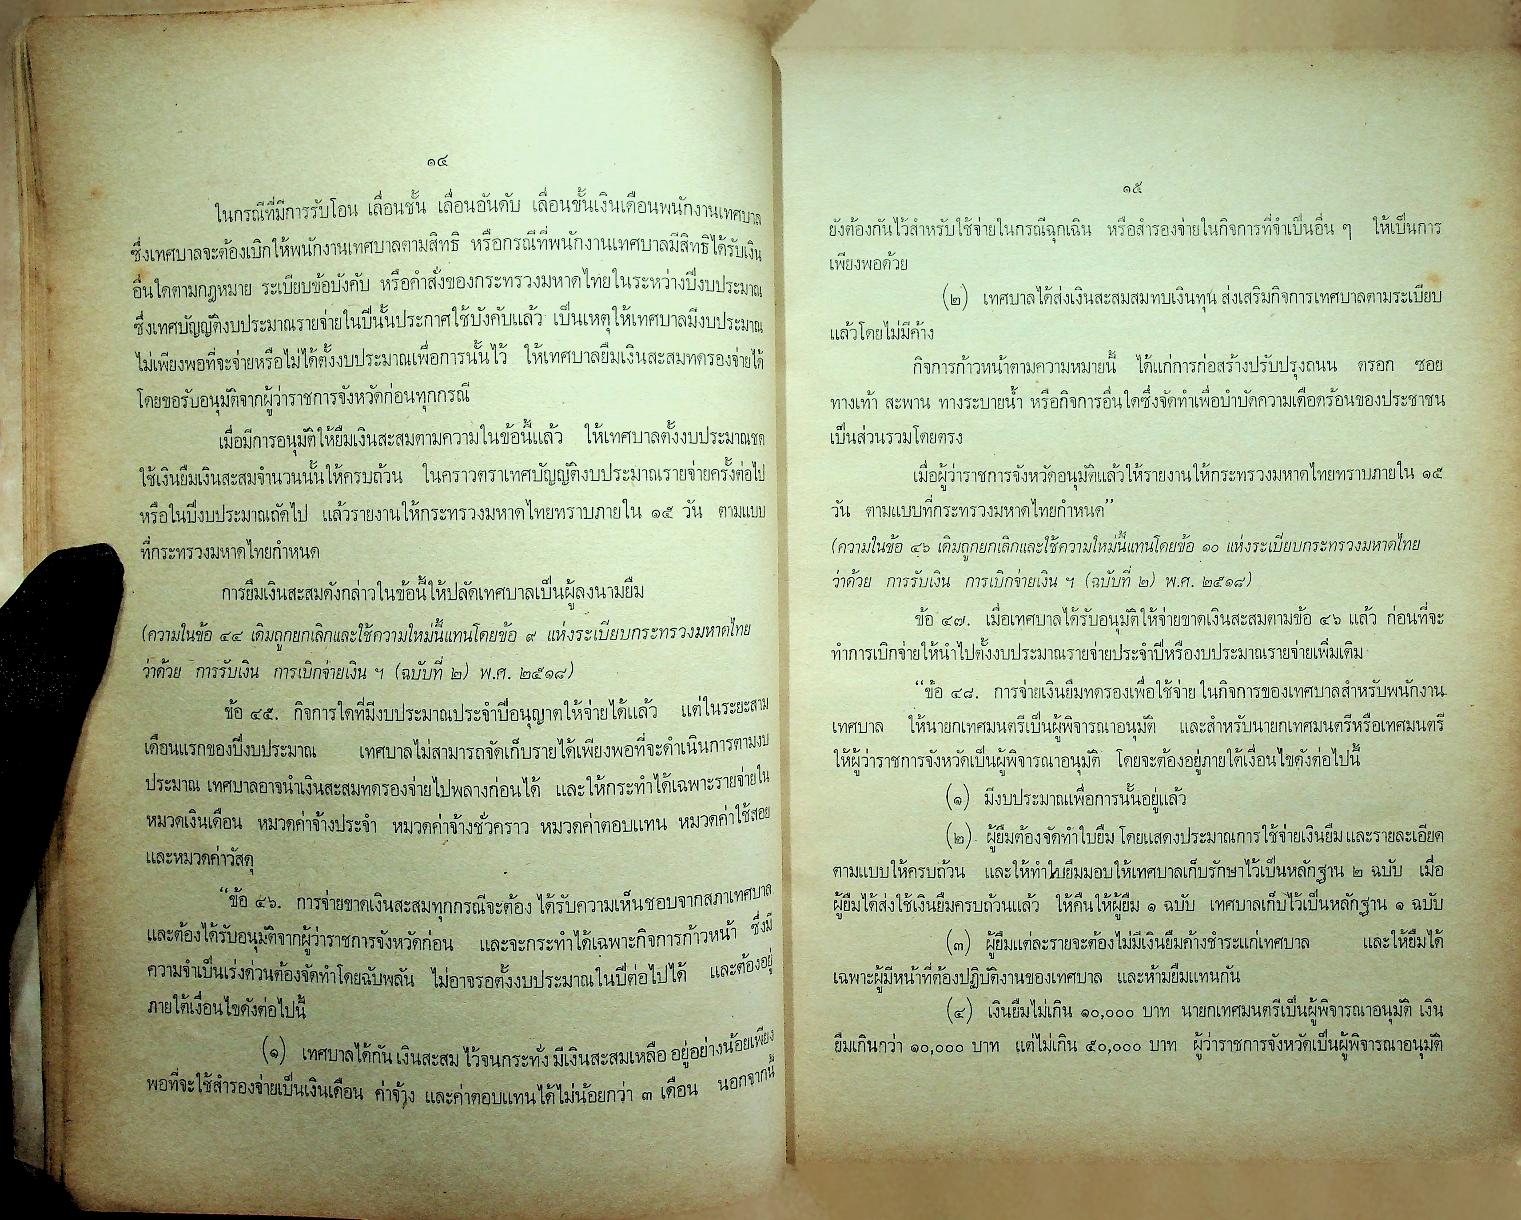 ๑๔
ในกรณีที่มีการรับโอน เลื่อนชั้น เลื่อนอันดับ เลื่อนขั้นเงินเดือนพนักงานเทศบาล
ซึ่งเทศบาลจะต้องเบิกให้พนักงานเทศบาลตามสิทธิ หรือกรณีที่พนักงานเทศบาลมีสิทธิได้รับเงิน
อื่นใดตามกฎหมาย ระเบียบข้อบังคับ หรือคำสั่งของกระทรวงมหาดไทยในระหว่างปีงบประมาณ
ซึ่งเทศบัญญัติงบประมาณรายจ่ายในปีนั้นประกาศใช้บังคับแล้ว เป็นเหตุให้เทศบาลมีงบประมาณ
ไม่เพียงพอที่จะจ่ายหรือไม่ได้ตั้งงบประมาณเพื่อการนั้นไว้ ให้เทศบาลยืมเงินสะสมทดรองจ่ายได้
โดยขอรับอนุมัติจากผู้ว่าราชการจังหวัดก่อนทุกกรณี
เมื่อมีการอนุมัติให้ยืมเงินสะสมตามความในข้อนี้แล้ว ให้เทศบาลตั้งงบประมาณชด
ใช้เงินยืมเงินสะสมจำนวนนั้นให้ครบถ้วน ในคราวตราเทศบัญญัติงบประมาณรายจ่ายครั้งต่อไป
หรือในปีงบประมาณถัดไป แล้วรายงานให้กระทรวงมหาดไทยทราบภายใน ๑๕ วัน ตามแบบ
ที่กระทรวงมหาดไทยกำหนด
การยืมเงินสะสมดังกล่าวในข้อนี้ให้ปลัดเทศบาลเป็นผู้ลงนามยืม
(ความในข้อ ๔๔ เดิมถูกยกเลิกและใช้ความใหม่นี้แทนโดยข้อ ๙ แห่งระเบียบกระทรวงมหาดไทย
ว่าด้วย การรับเงิน การเบิกจ่ายเงิน ฯ (ฉบับที่ ๒) พ.ศ. ๒๕๑๘)
ข้อ ๔๕. กิจการใดที่มีงบประมาณประจำปีอนุญาตให้จ่ายได้แล้ว แต่ในระยะสาม
เดือนแรกของปีงบประมาณ เทศบาลไม่สามารถจัดเก็บรายได้เพียงพอที่จะดำเนินการตามงบ
ประมาณ เทศบาลอาจนำเงินสะสมทดรองจ่ายไปพลางก่อนได้ และให้กระทำได้เฉพาะรายจ่ายใน
หมวดเงินเดือน หมวดค่าจ้างประจำ หมวดค่าจ้างชั่วคราว หมวดค่าตอบแทน หมวดค่าใช้สอย
และหมวดค่าวัสดุ
“ข้อ ๔๖. การจ่ายขาดเงินสะสมทุกกรณีจะต้อง ได้รับความเห็นชอบจากสภาเทศบาล
และต้องได้รับอนุมัติจากผู้ว่าราชการจังหวัดก่อน และจะกระทำได้เฉพาะกิจการก้าวหน้า ซึ่งมี
ความจำเป็นเร่งด่วนต้องจัดทำโดยฉับพลัน ไม่อาจรอตั้งงบประมาณในปีต่อไปได้ และต้องอยู่
ภายใต้เงื่อนไขดังต่อไปนี้
(๑) เทศบาลได้กัน เงินสะสม ไว้จนกระทั่ง มีเงินสะสมเหลือ อยู่อย่างน้อยเพียง
พอที่จะใช้สำรองจ่ายเป็นเงินเดือน ค่าจ้าง และค่าตอบแทนได้ไม่น้อยกว่า ๓ เดือน นอกจากนี้
๑๕
ยังต้องกันไว้สำหรับใช้จ่ายในกรณีฉุกเฉิน หรือสำรองจ่ายในกิจการที่จำเป็นอื่น ๆ ให้เป็นการ
เพียงพอด้วย
(๒) เทศบาลได้ส่งเงินสะสมสมทบเงินทุน ส่งเสริมกิจการเทศบาลตามระเบียบ
แล้วโดยไม่มีค้าง
กิจการก้าวหน้าตามความหมายนี้ ได้แก่การก่อสร้างปรับปรุงถนน ตรอก ซอย
ทางเท้า สะพาน ทางระบายน้ำ หรือกิจการอื่นใดซึ่งจัดทำเพื่อบำบัดความเดือดร้อนของประชาชน
เป็นส่วนรวมโดยตรง
เมื่อผู้ว่าราชการจังหวัดอนุมัติแล้วให้รายงานให้กระทรวงมหาดไทยทราบภายใน ๑๕
วัน ตามแบบที่กระทรวงมหาดไทยกำหนด”
(ความในข้อ ๔๖ เดิมถูกยกเลิกและใช้ความใหม่นี้แทนโดยข้อ ๑๐ แห่งระเบียบกระทรวงมหาดไทย
ว่าด้วย การรับเงิน การเบิกจ่ายเงิน ฯ (ฉบับที่ ๒) พ.ศ. ๒๕๑๘)
ข้อ ๔๗. เมื่อเทศบาลได้รับอนุมัติให้จ่ายขาดเงินสะสมตามข้อ ๔๖ แล้ว ก่อนที่จะ
ทำการเบิกจ่ายให้นำไปตั้งงบประมาณรายจ่ายประจำปีหรืองบประมาณรายจ่ายเพิ่มเติม
“ข้อ ๔๘. การจ่ายเงินยืมทดรองเพื่อใช้จ่าย ในกิจการของเทศบาลสำหรับพนักงาน
เทศบาล ให้นายกเทศมนตรีเป็นผู้พิจารณาอนุมัติ และสำหรับนายกเทศมนตรีหรือเทศมนตรี
ให้ผู้ว่าราชการจังหวัดเป็นผู้พิจารณาอนุมัติ โดยจะต้องอยู่ภายใต้เงื่อนไขดังต่อไปนี้
(๑) มีงบประมาณเพื่อการนั้นอยู่แล้ว
(๒) ผู้ยืมต้องจัดทำใบยืม โดยแสดงประมาณการใช้จ่ายเงินยืม และรายละเอียด
ตามแบบให้ครบถ้วน และให้ทำใบยืมมอบให้เทศบาลเก็บรักษาไว้เป็นหลักฐาน ๒ ฉบับ เมื่อ
ผู้ยืมได้ส่งใช้เงินยืมครบถ้วนแล้ว ให้คืนให้ผู้ยืม ๑ ฉบับ เทศบาลเก็บไว้เป็นหลักฐาน ๑ ฉบับ
(๓) ผู้ยืมแต่ละรายจะต้องไม่มีเงินยืมค้างชำระแก่เทศบาล และให้ยืมได้
เฉพาะผู้มีหน้าที่ต้องปฏิบัติงานของเทศบาล และห้ามยืมแทนกัน
(๔) เงินยืมไม่เกิน ๑๐,๐๐๐ บาท นายกเทศมนตรีเป็นผู้พิจารณาอนุมัติ เงิน
ยืมเกินกว่า ๑๐,๐๐๐ บาท แต่ไม่เกิน ๕๐,๐๐๐ บาท ผู้ว่าราชการจังหวัดเป็นผู้พิจารณาอนุมัติ